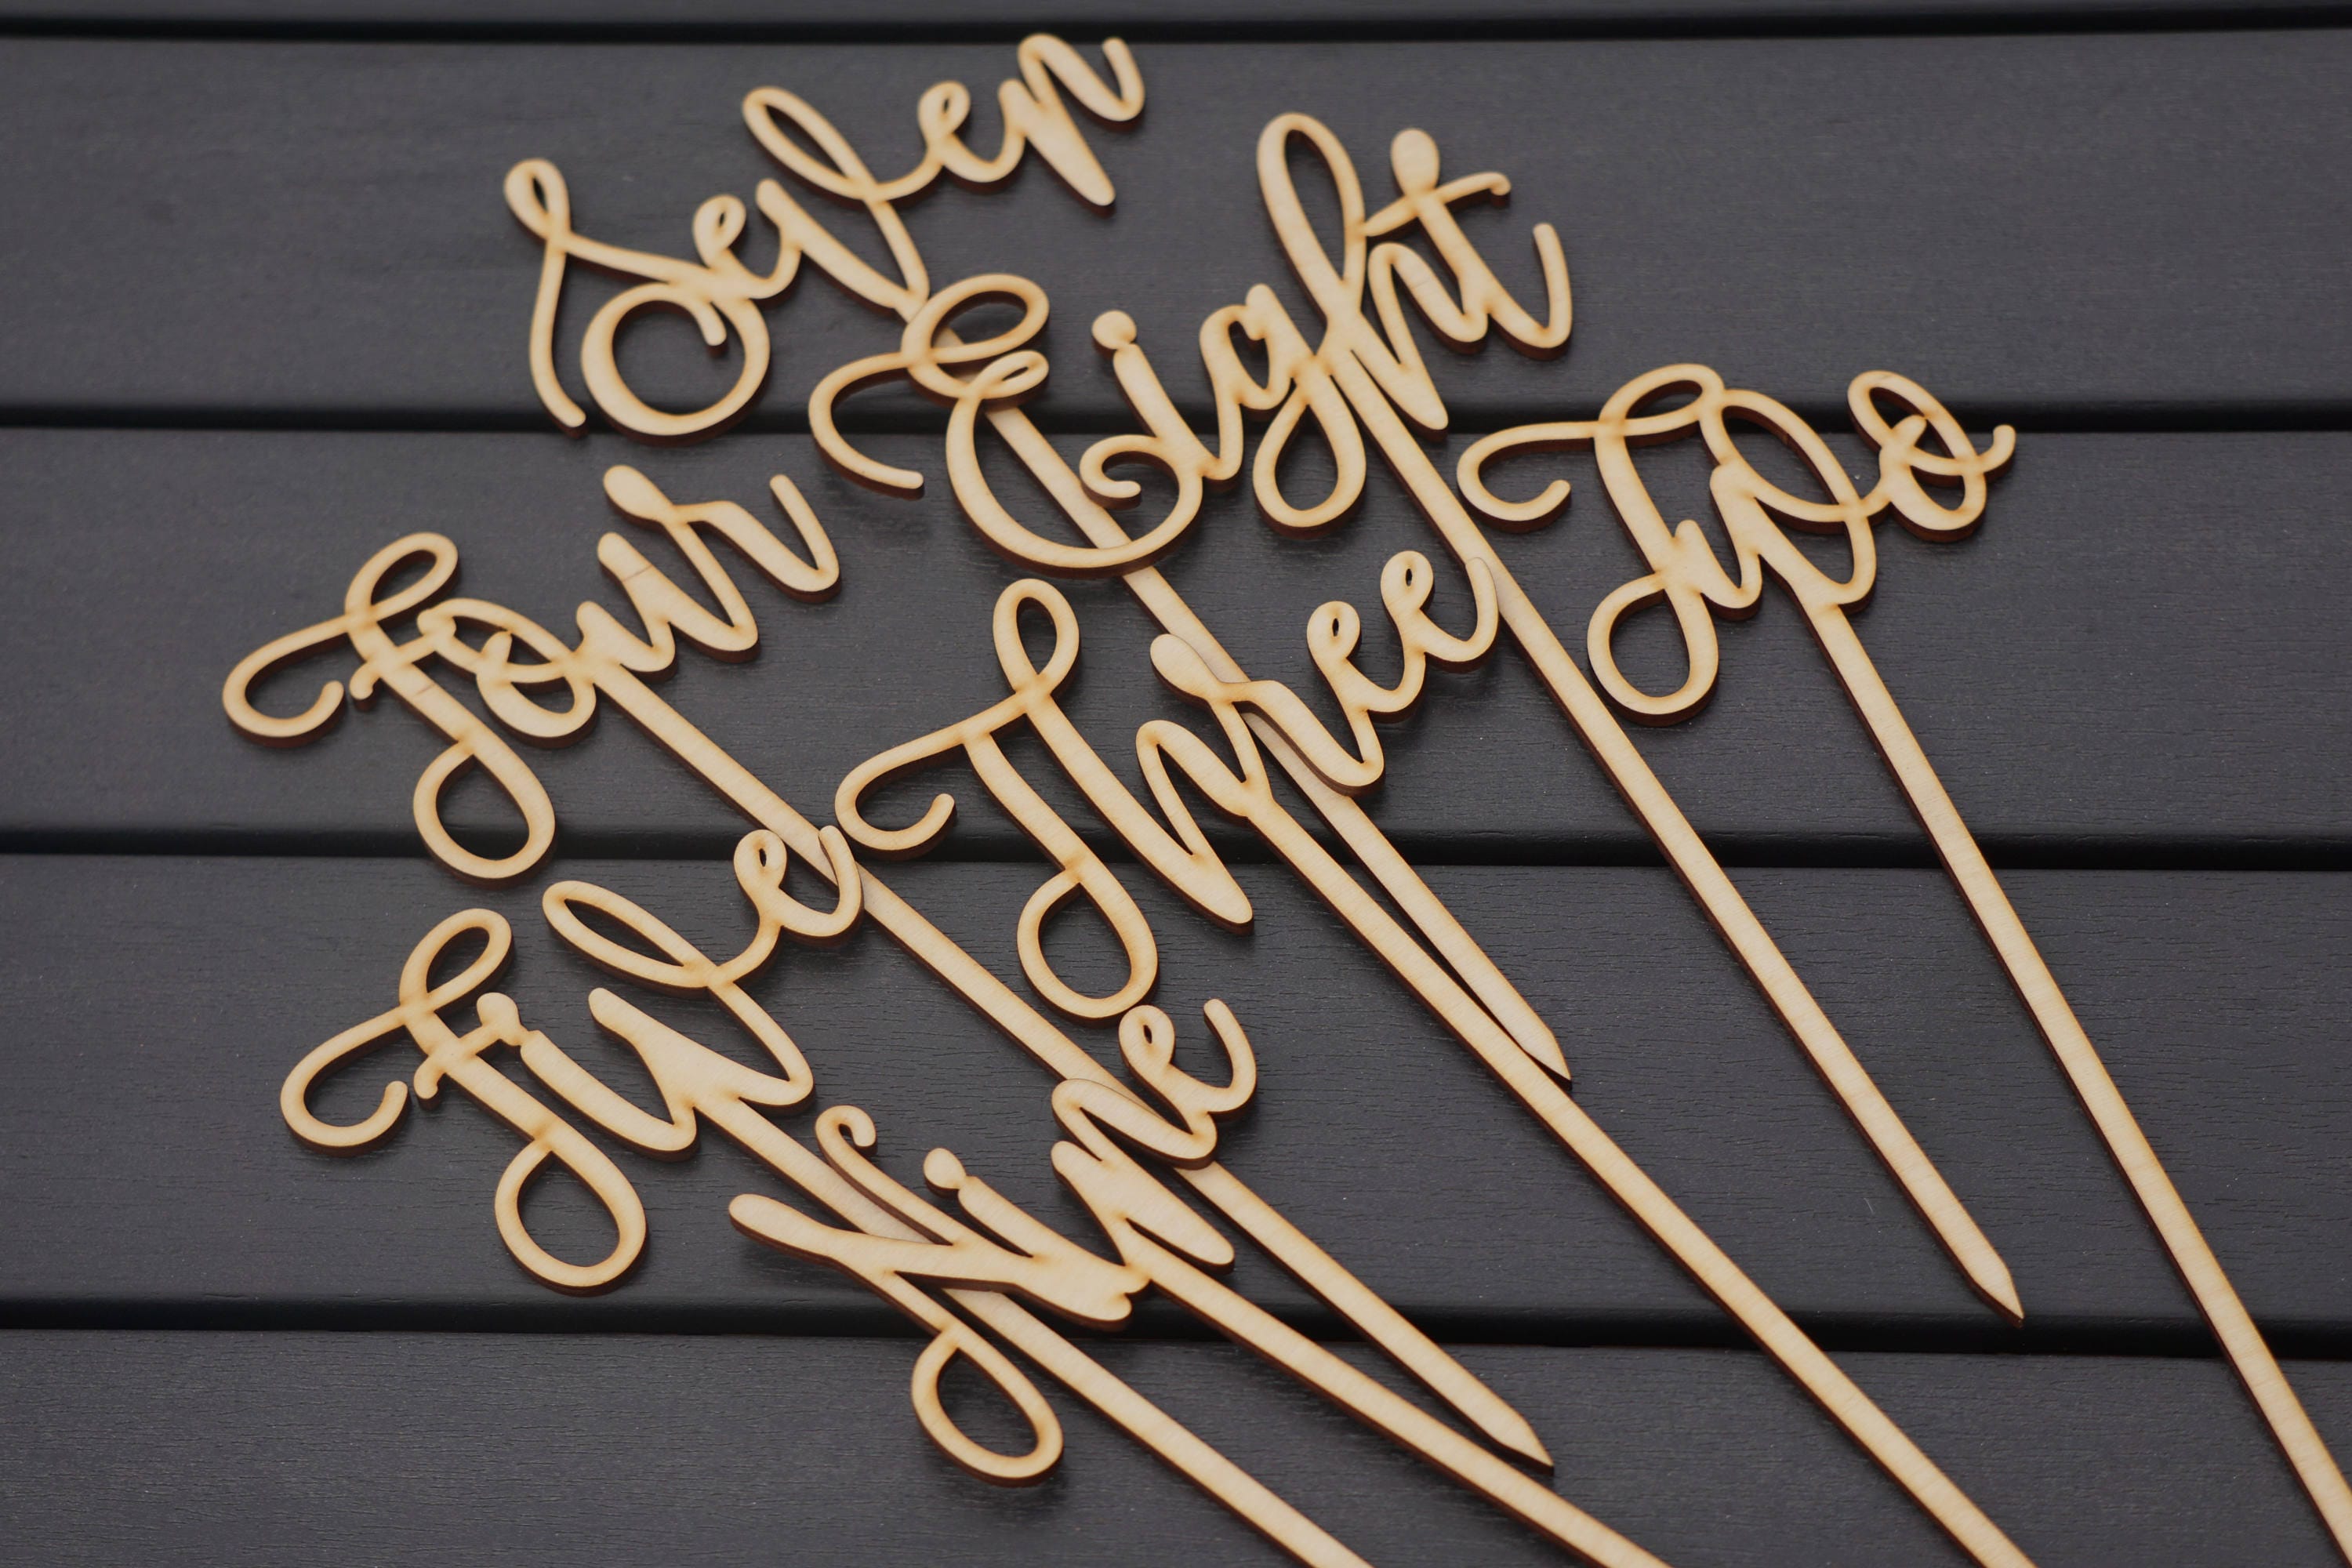 Seven
Eight
Two
Four
Three
Five
Nine